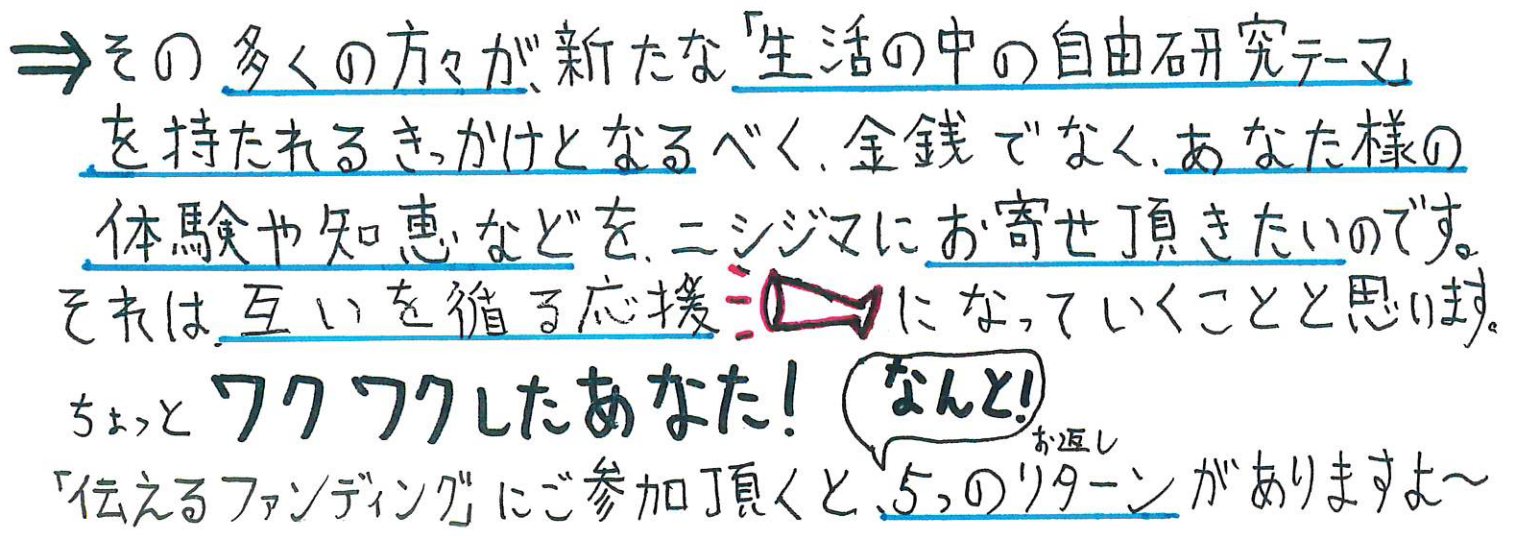 ⇒その多くの方々が、新たな「生活の中の自由研究テーマ」
を持たれるきっかけとなるべく、金銭でなく、あなた様の
体験や知恵などを、ニシジマにお寄せ頂きたいのです。
それは互いを循る応援になっていくことと思います。
ちょっとワクワクしたあなた!
なんと!
お返し
「伝えるファンディング」にご参加頂くと、5つのリターンがありますよ〜